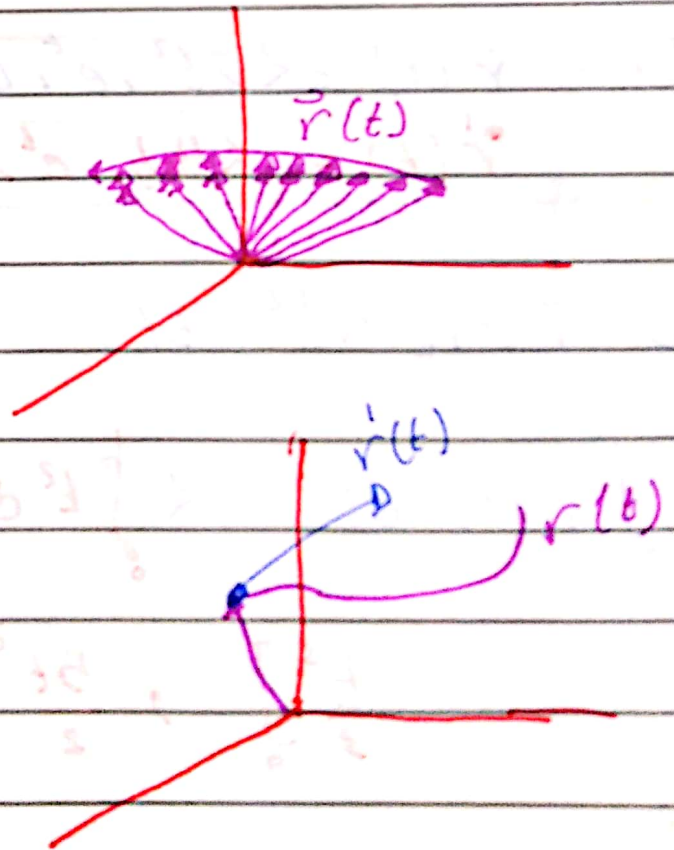 r⃗(t)
ṙ(t)
r(t)